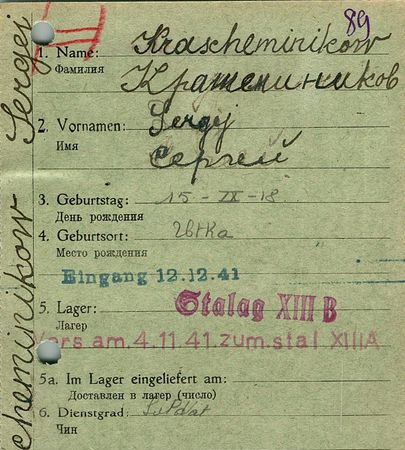 89
II
1. Name: Krascheminikow
Фамилия Крашенинников
2. Vornamen: Sergej
Имя Сергей
3. Geburtstag: 15-IX-18
День рождения
4. Geburtsort:
Место рождения
Eingang 12.12.41
5. Lager: Stalag XIII B
Лагерь
Vers am. 4.11 41. zum. stal XIII A
5a. Im Lager eingeliefert am:
Доставлен в лагерь (число)
6. Dienstgrad: Soldat
Чин
cheminikow Sergej